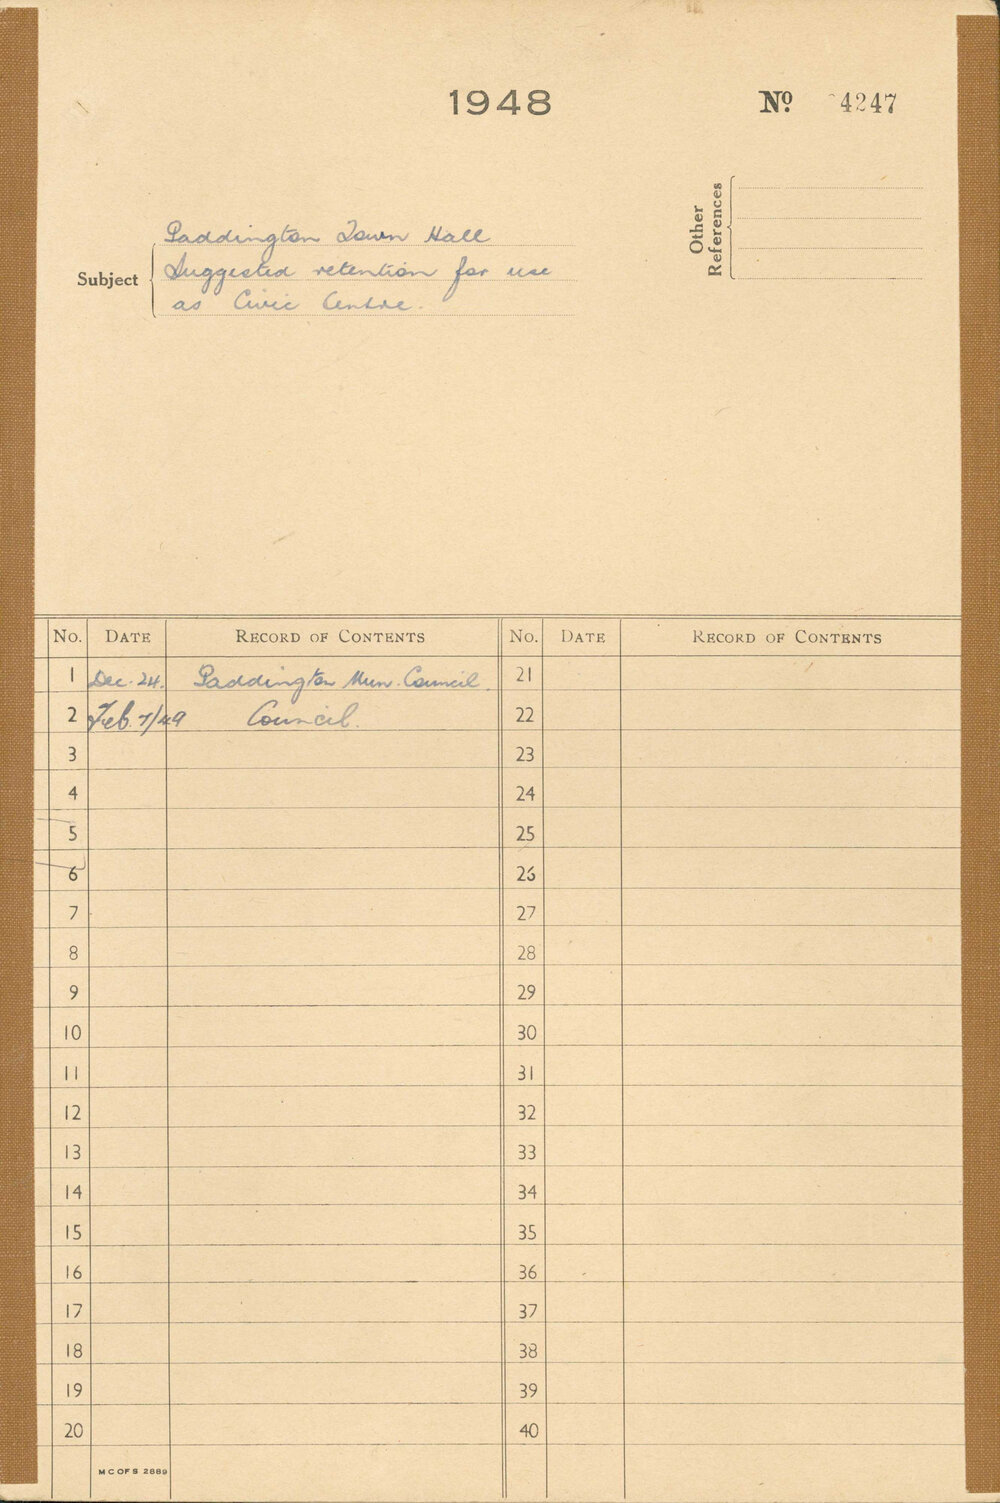 1948
No. 4247
Other
References
Paddington Town Hall
Subject Suggested retention for use
as Civic Centre.
No. Date Record of Contents No. Date Record of Contents
1 Dec. 24. Paddington Mun. Council. 21
2 Feb. 7/49 Council. 22
3 23
4 24
5 25
6 26
7 27
8 28
9 29
10 30
11 31
12 32
13 33
14 34
15 35
16 36
17 37
18 38
19 39
20 40
M C OF S 2889